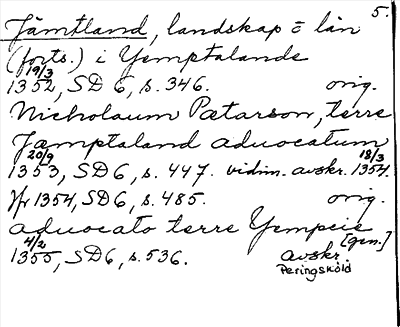 5.
Jämtland, landskap o län
(forts.) i Yemptalande
19/3
1352, SD 6, s. 346. orig.
Nicholaum Pætarson, terre
Jæmptaland aduocatum
20/9 18/3
1353, SD 6, s. 447. vidim. avskr. 1354
1354, SD 6, s. 485. orig.
aduocato terre Yempeie
4/2 [gen.]
1355, SD 6, s. 536. avskr.
Peringsköld